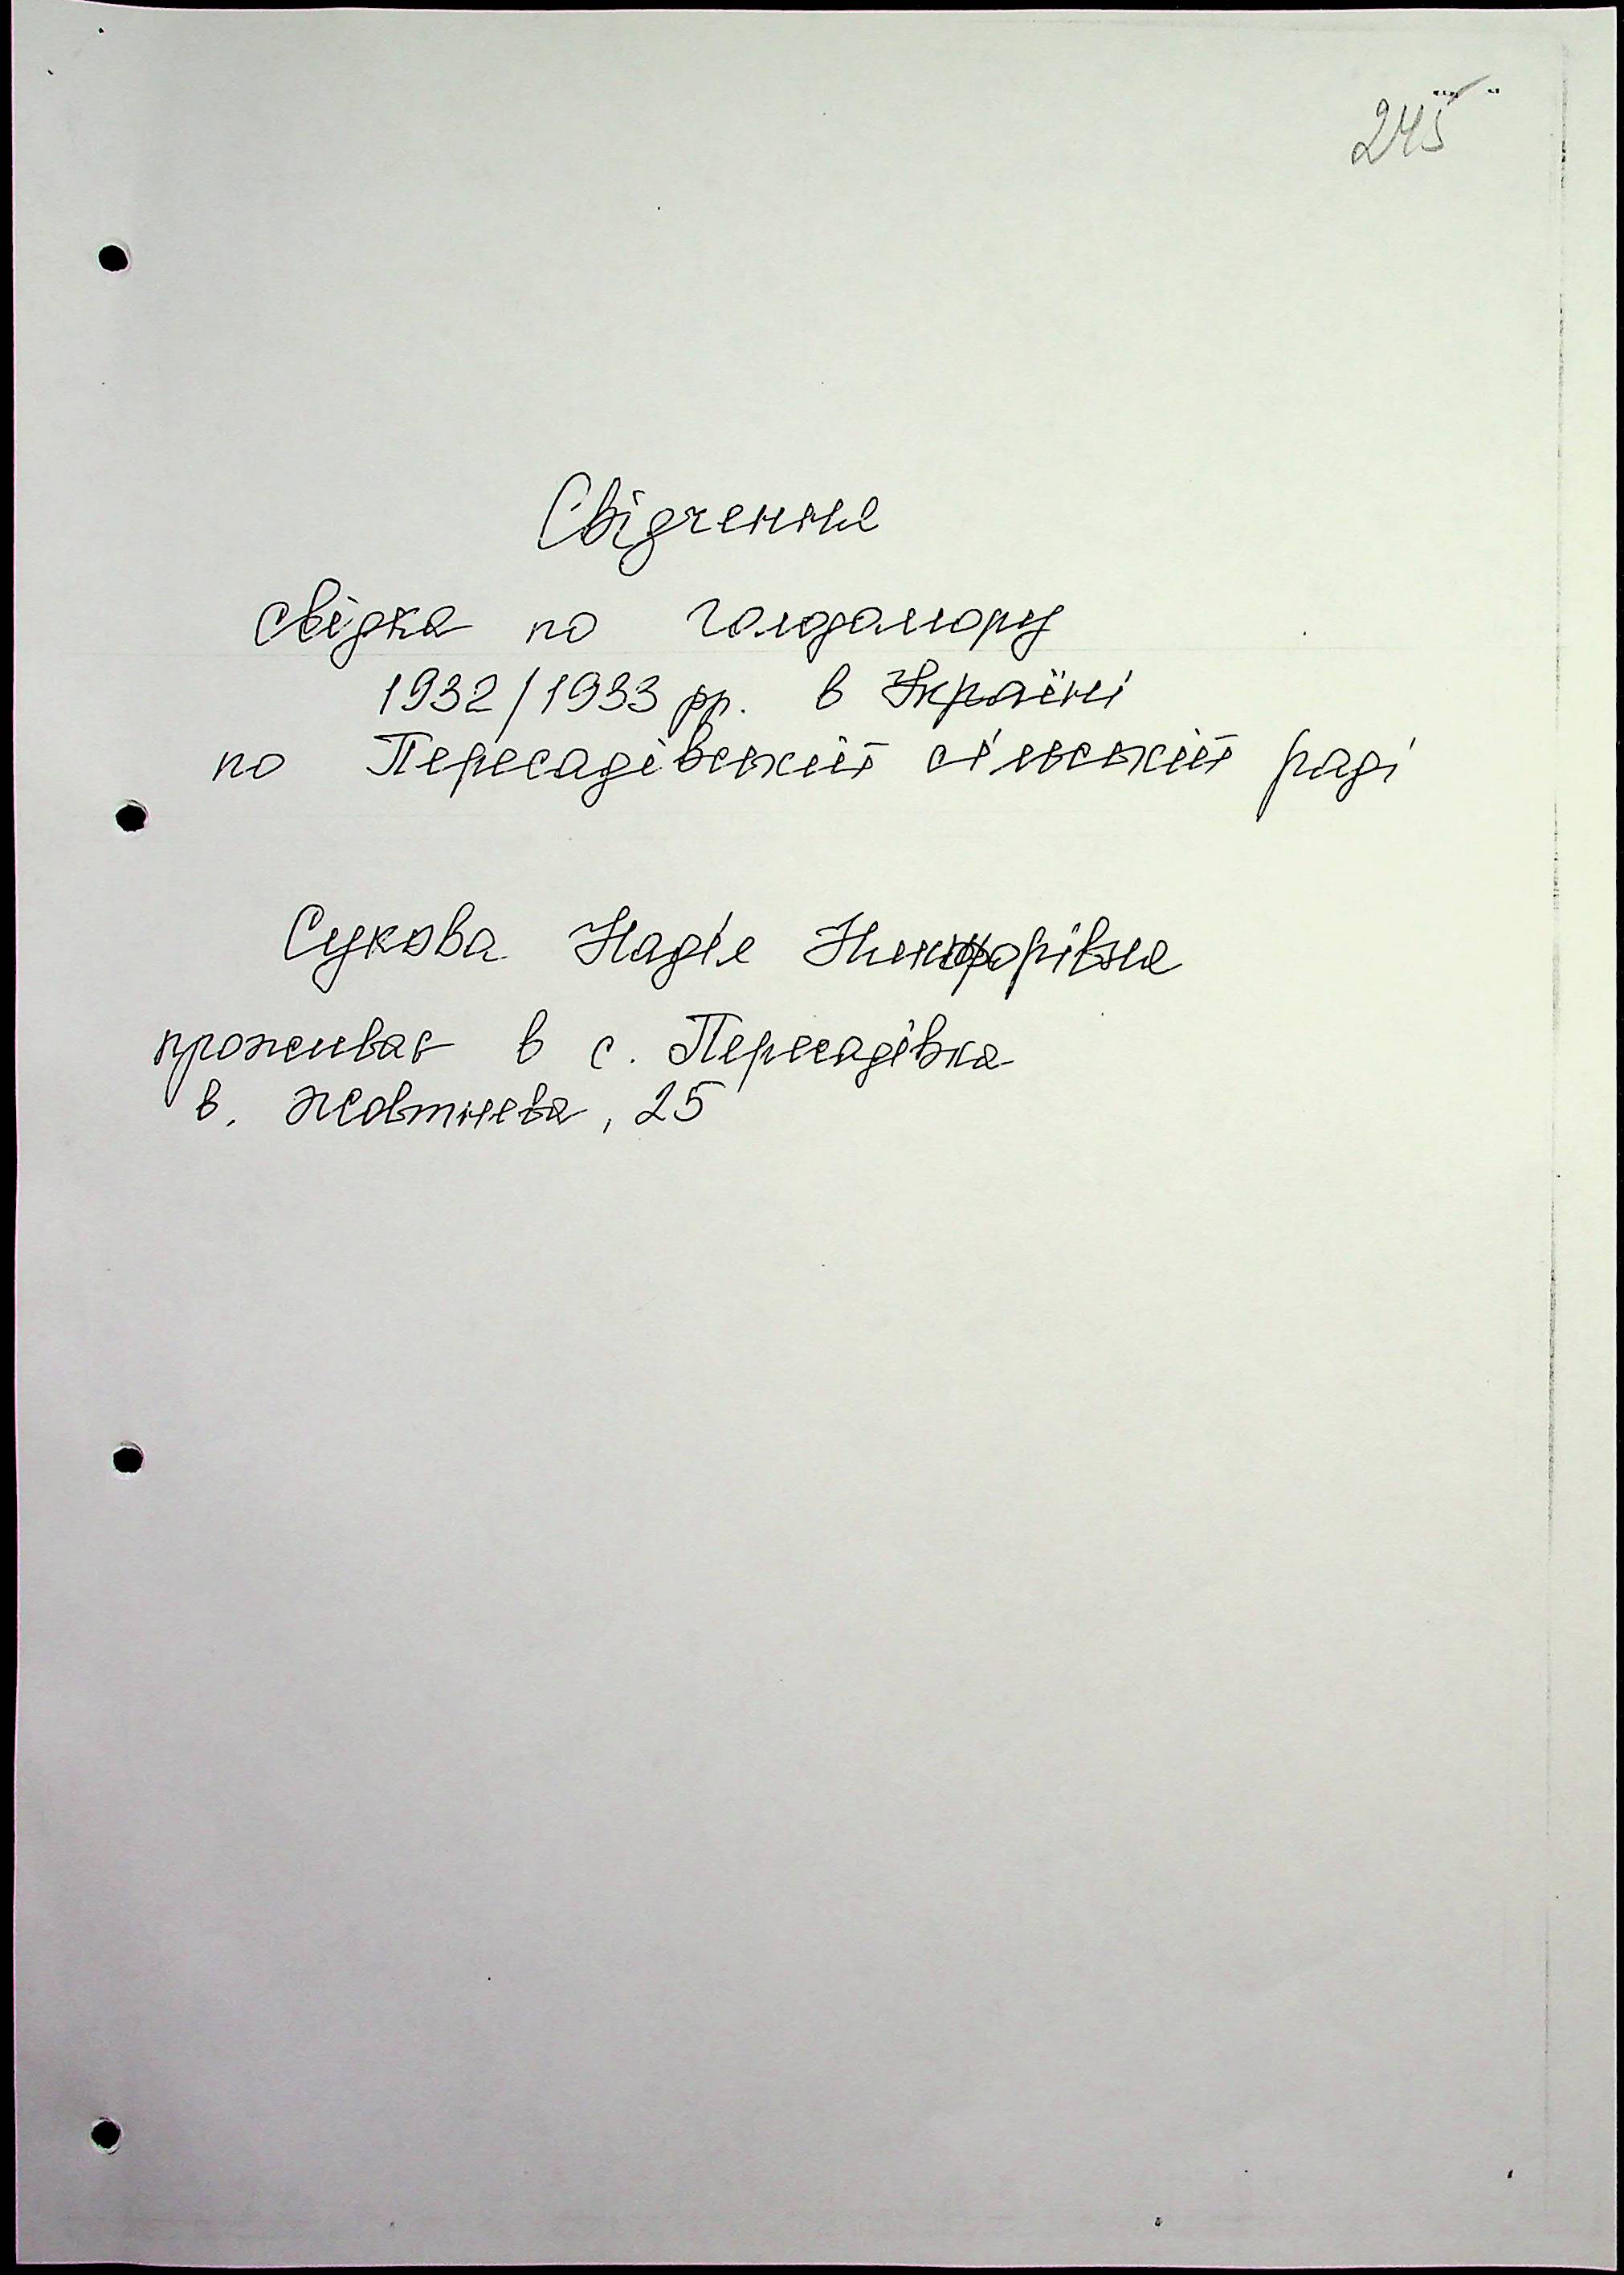 245
Свідчення
свідка по голодомору
1932/1933 рр. в Україні
по Пересадівській сільській раді
Сукова Надія Никифорівна
проживає в с. Пересадівка
в. Жовтнева, 25